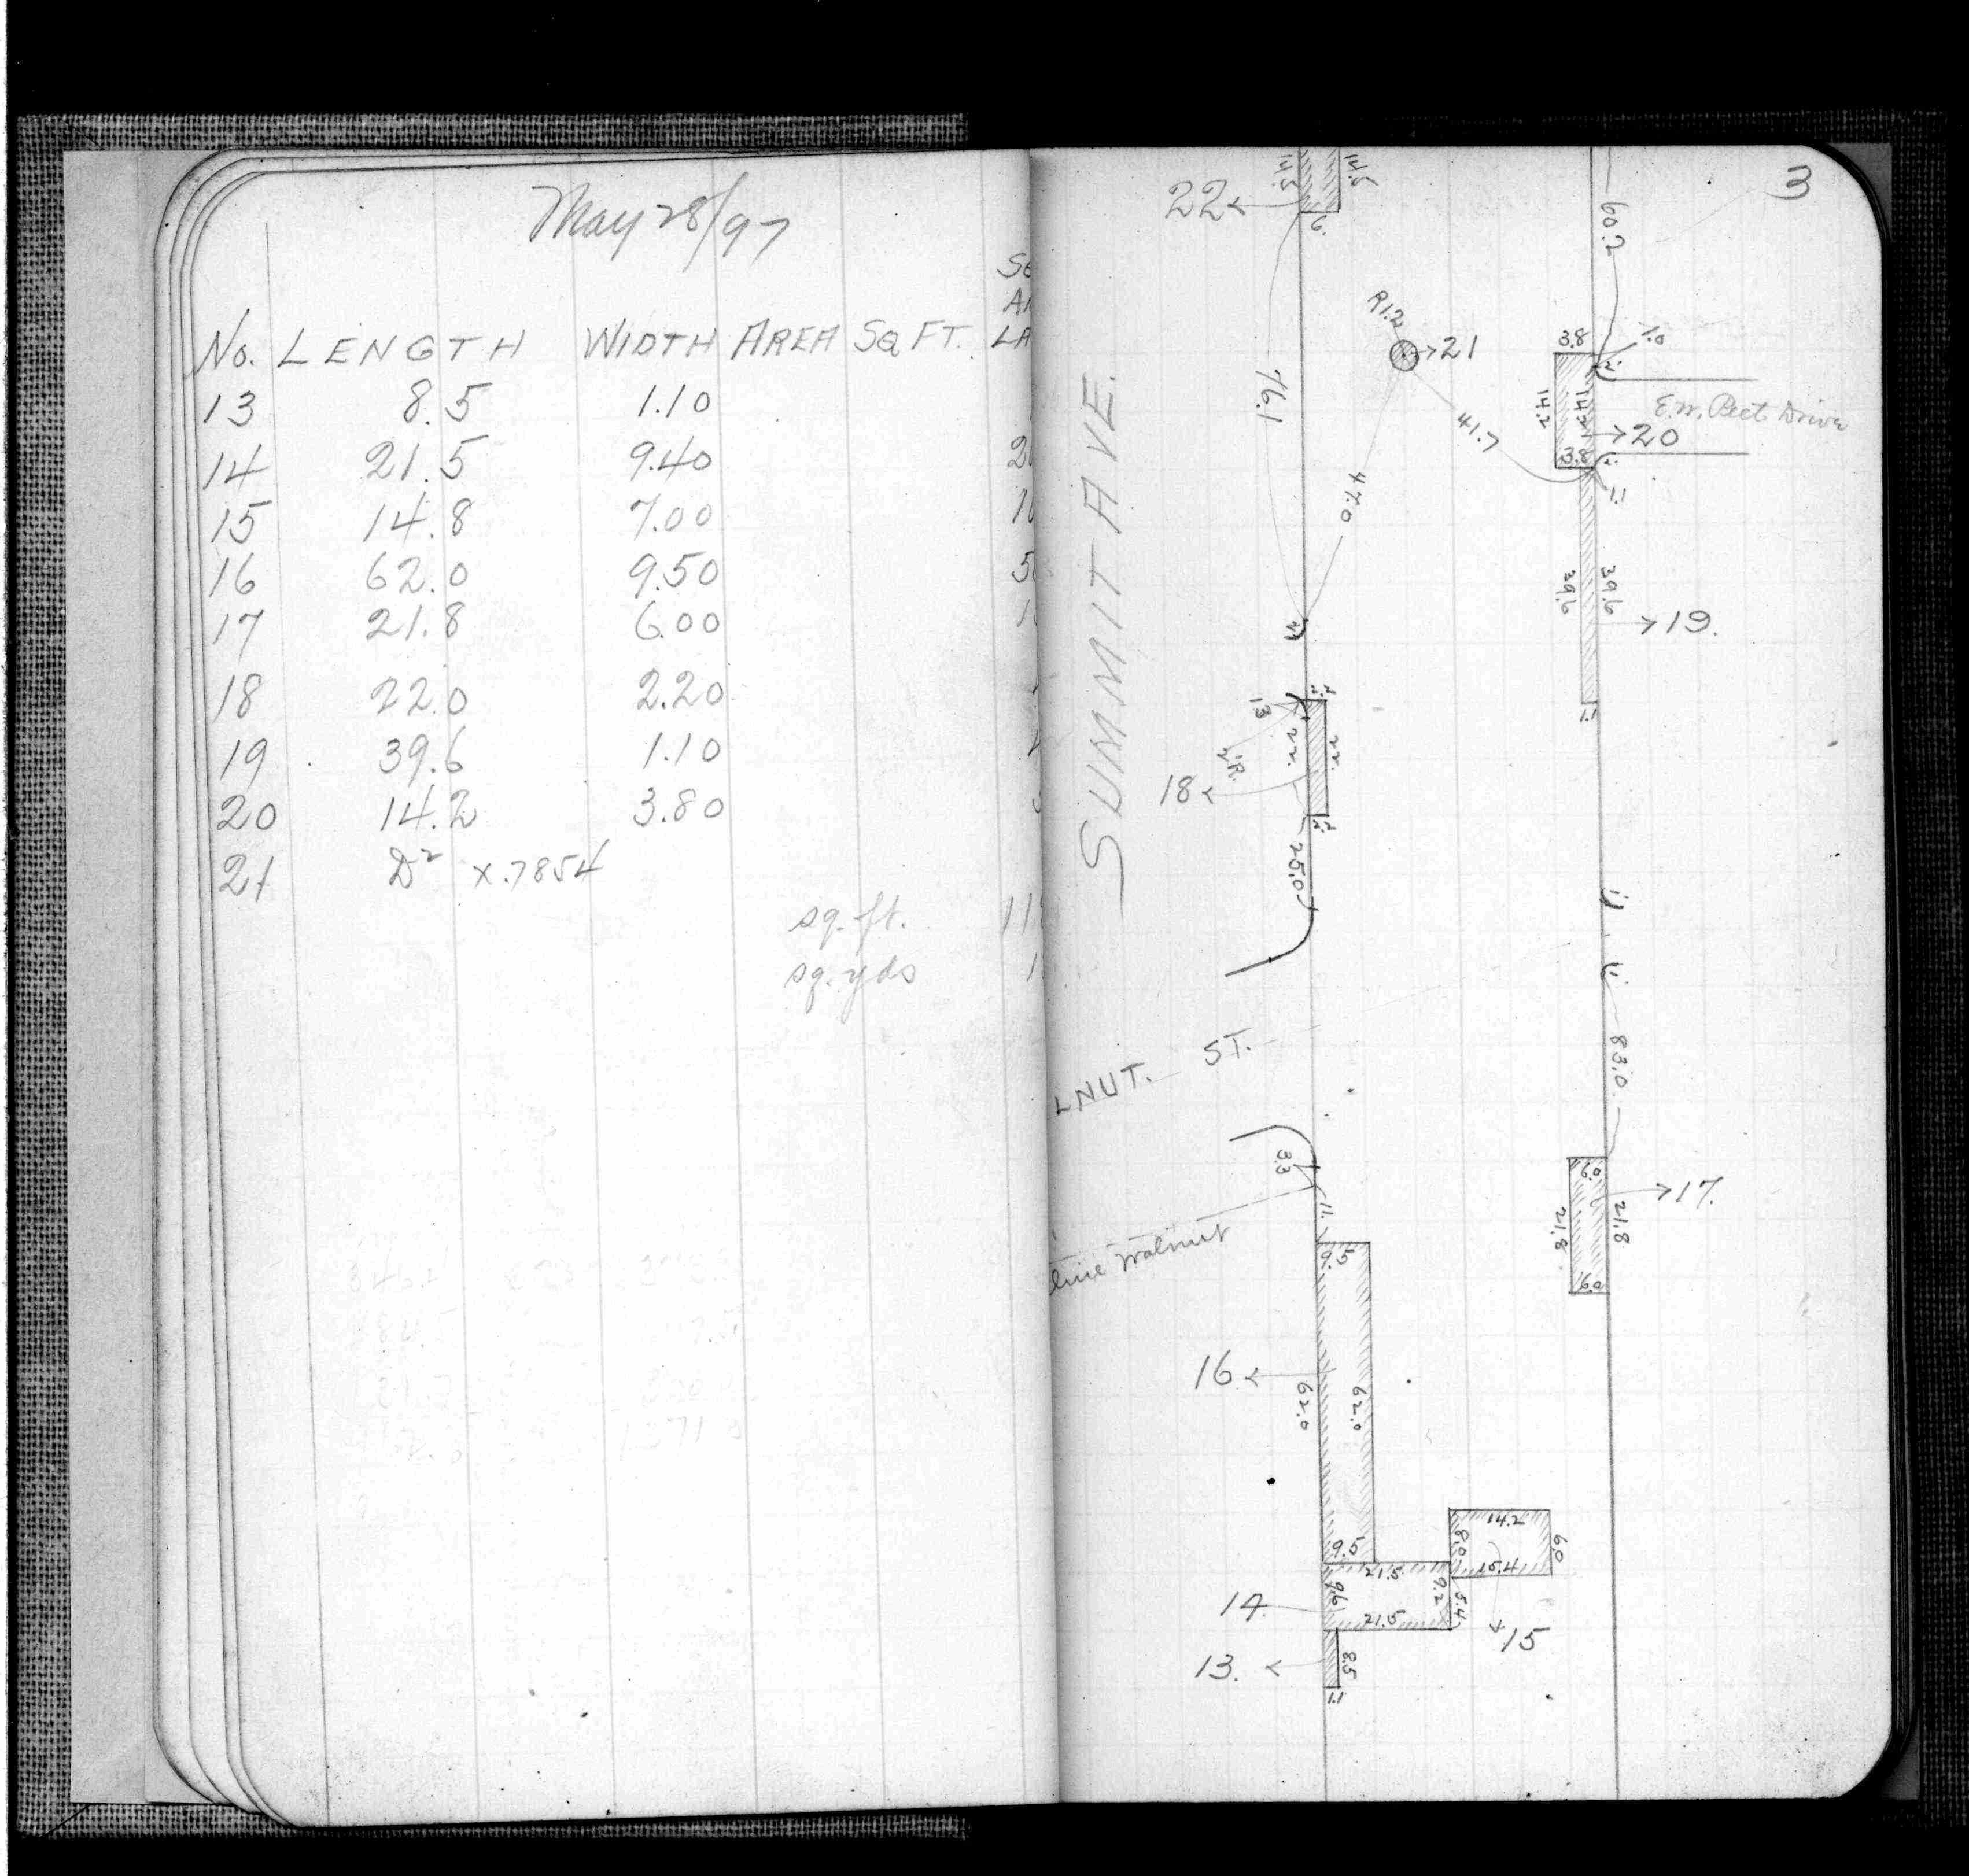 May 28/97
No. LENGTH WIDTH AREA SQ FT.
13 8.5 1.10
14 21.5 9.40
15 14.8 7.00
16 62.0 9.50
17 21.8 6.00
18 22.0 2.20
19 39.6 1.10
20 14.2 3.80
21 D² x .7854
sq. ft. 11
sq. yds 1
3
22
14.5
14.5
6.
60.2
R1.2
21
3.8
1.0
76.1
41.7
47.0
14.2
14.2
E.W. Peet Drive
20
3.8
1.1
39.6
39.6
19.
1.1
SUMMIT AVE.
2.2
13
22.
22.
18
2.2
25.0
83.0
LNUT. ST.
3.3
11.
line Walnut
6.0
17.
21.8
21.8
6.0
9.5
16
62.0
62.0
9.5
14.2
8.0
6.0
15.4
21.5
9.6
9.2
5.4
14.
21.5
15
13.
8.5
1.1